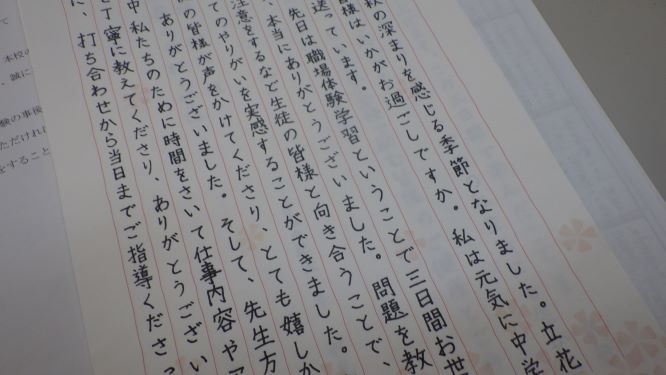 秋の深まりを感じる季節となりました。立花
皆様はいかがお過ごしですか。私は元気に中学
送っています。
先日は職場体験学習ということで三日間お世
、本当にありがとうございました。問題を教
注意をするなど生徒の皆様と向き合うことで、
てのやりがいを実感することができました。
の皆様が声をかけてくださり、とても嬉しか
ありがとうございました。そして、先生方
中私たちのために時間をさいて仕事内容や
丁寧に教えてくださり、ありがとうござい
に、打ち合わせから当日までご指導くださっ
本校の
、誠に
験の事後
ただければ
をすること